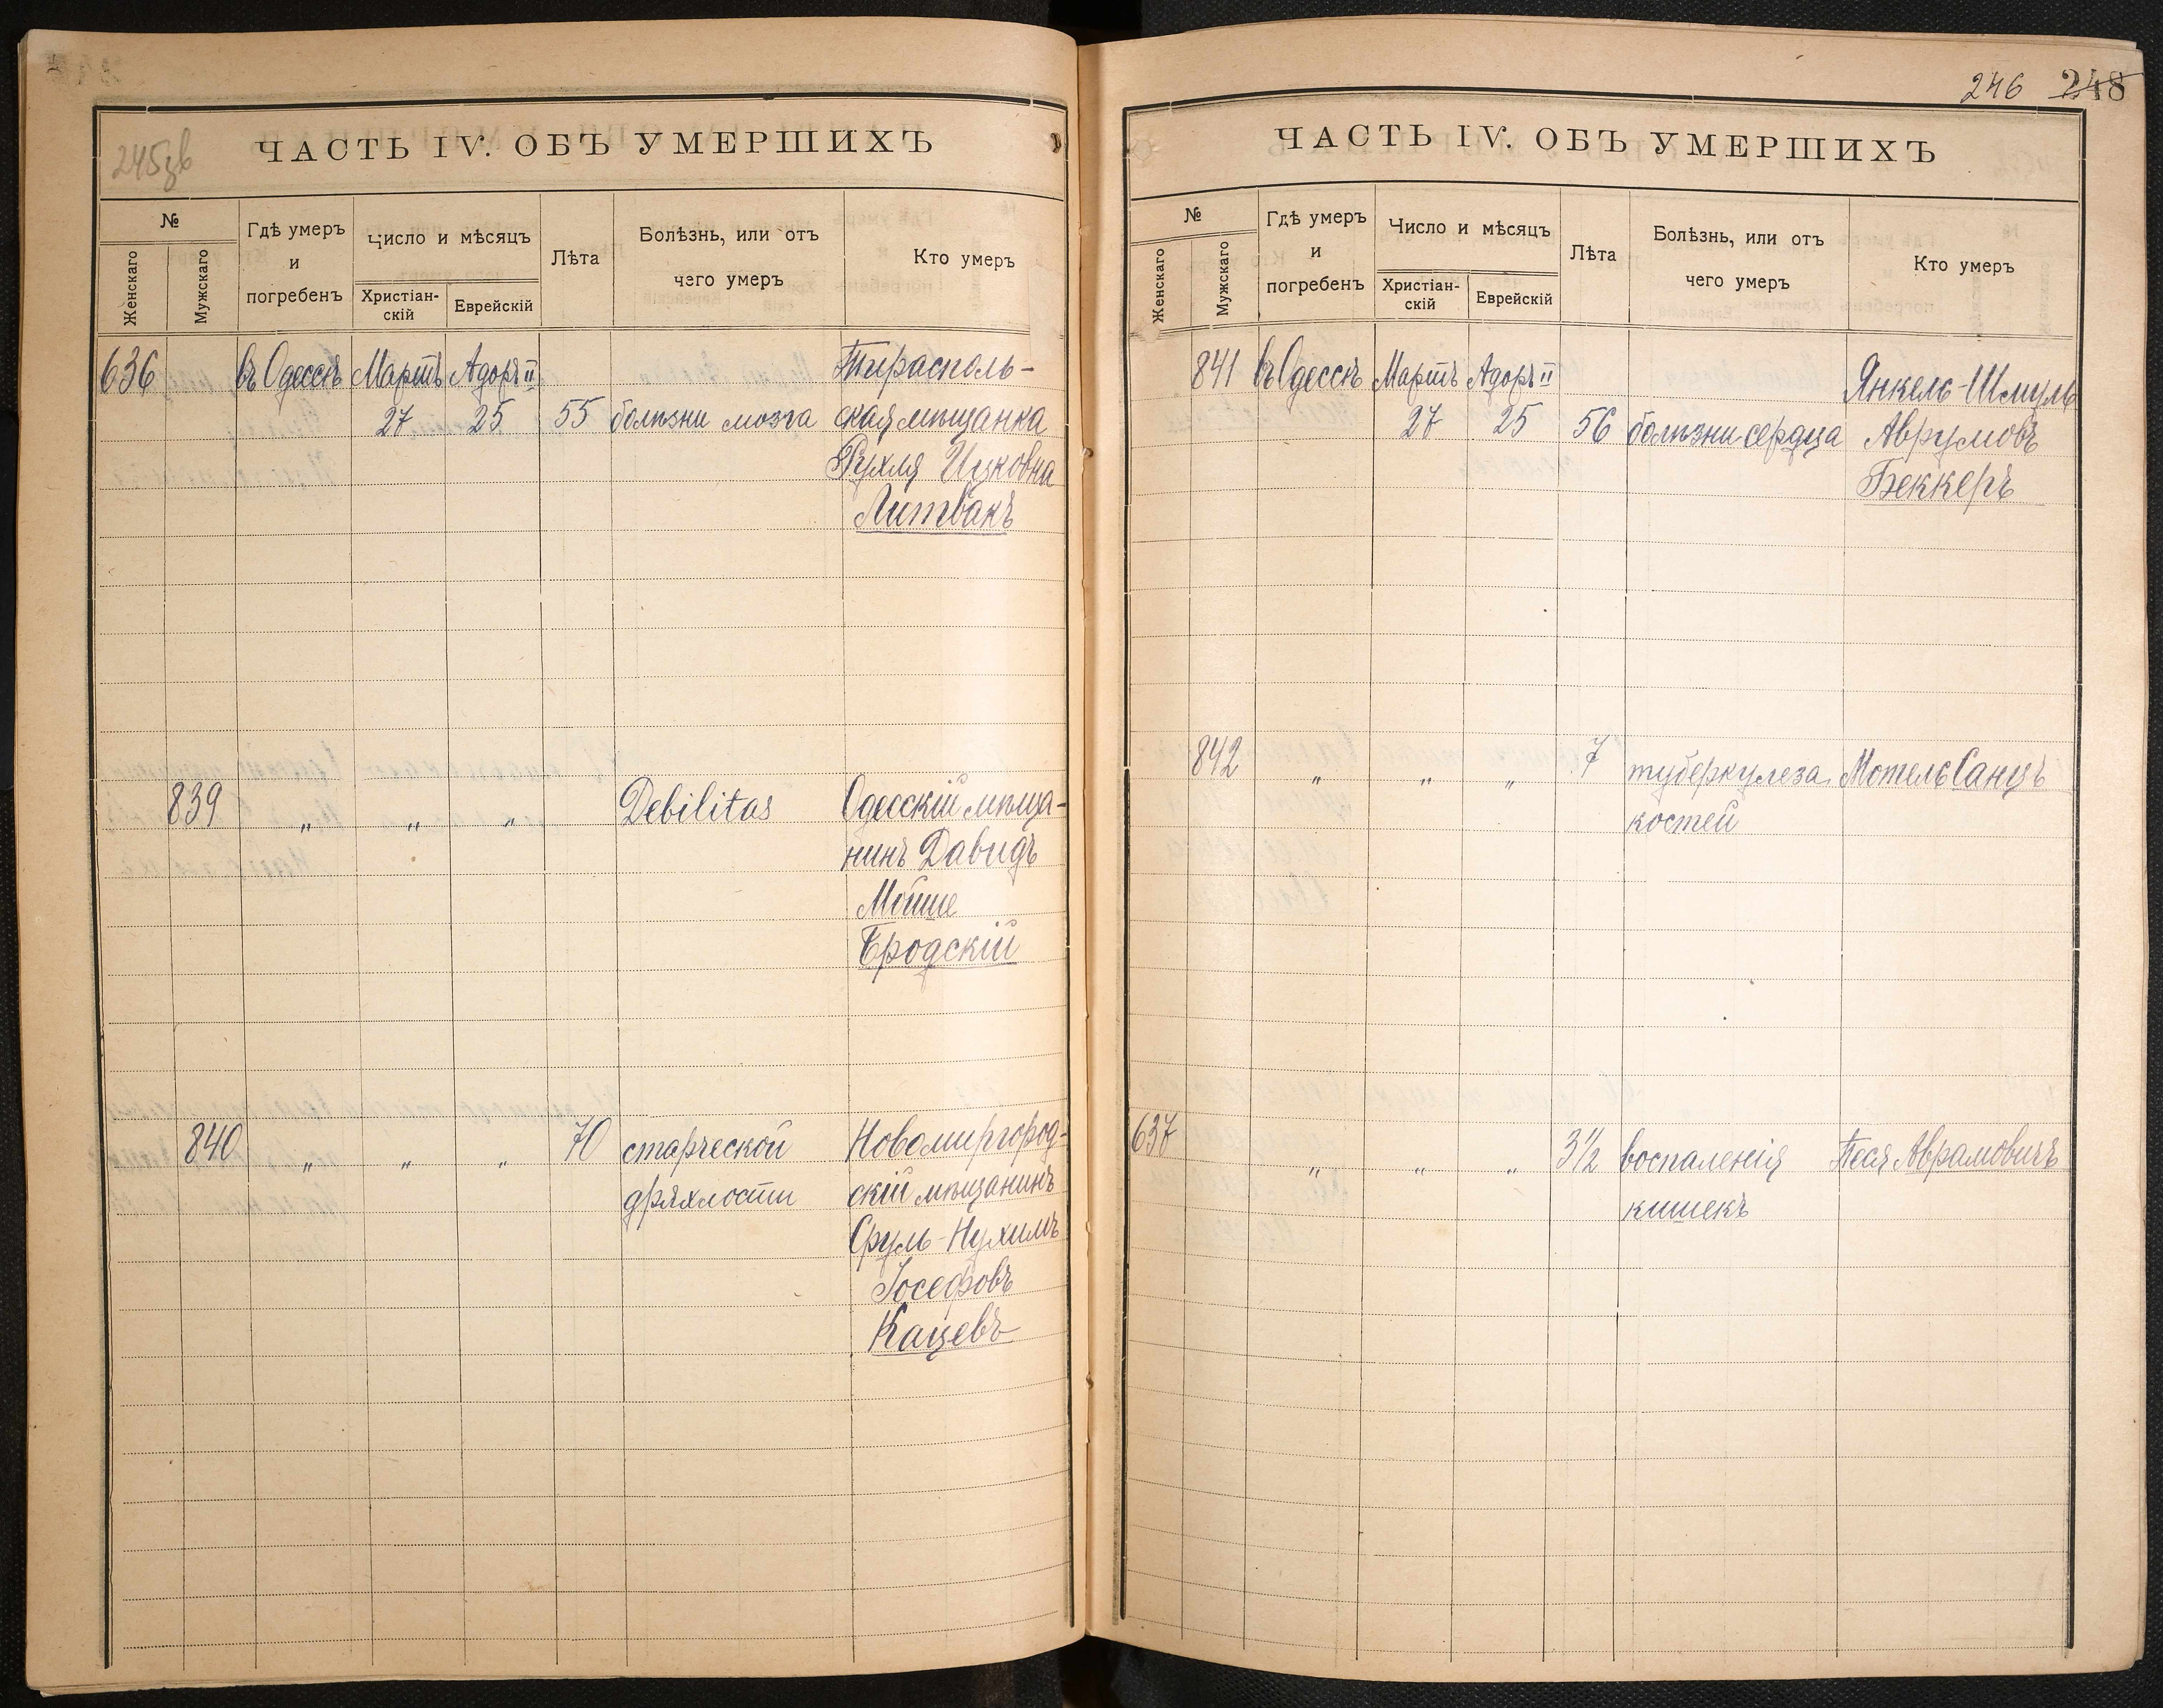 245зв
ЧАСТЬ IV. ОБЪ УМЕРШИХЪ
№
Женскаго
Мужскаго
Гдѣ умеръ
и
погребенъ
Число и мѣсяцъ
Христіан-
скій
Еврейскій
Лѣта
Болѣзнь, или отъ
чего умеръ
Кто умеръ
636 въ Одессѣ Мартъ Адоръ II Тирасполь-
27 25 55 болѣзни мозга ская мѣщанка
Рухля Ицковна
Литвакъ
839 „ „ „ Debilitas Одесскій мѣща-
нинъ Давидъ
Мойше
Бродскій
840 „ „ „ 70 старческой Новомиргород-
дряхлости скій мѣщанинъ
Сруль-Нухимъ
Іосефовъ
Кацевъ
246 248
ЧАСТЬ IV. ОБЪ УМЕРШИХЪ
№
Женскаго
Мужскаго
Гдѣ умеръ
и
погребенъ
Число и мѣсяцъ
Христіан-
скій
Еврейскій
Лѣта
Болѣзнь, или отъ
чего умеръ
Кто умеръ
841 въ Одессѣ Мартъ Адоръ II Янкель-Шмуль
27 25 56 болѣзни сердца Аврумовъ
Беккеръ
842 „ „ „ 7 туберкулеза Мотель Санцъ
костей
637 „ „ „ 3½ воспаленія Песя Аврамовичъ
кишекъ